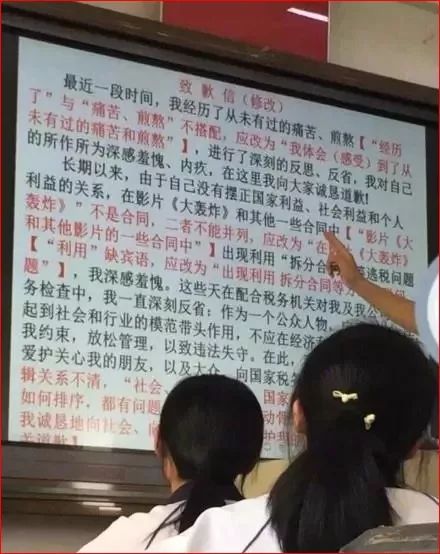 致 歉 信（修改）
最近一段时间，我经历了从未有过的痛苦、煎熬【“经历
了”与“痛苦、煎熬”不搭配，应改为“我体会（感受）到了从
未有过的痛苦和煎熬”】，进行了深刻的反思、反省，我对自己
的所作所为深感羞愧、内疚，在这里我向大家诚恳道歉！
长期以来，由于自己没有摆正国家利益、社会利益和个人
利益的关系，在影片《大轰炸》和其他一些合同中【“影片《大
轰炸》”不是合同，二者不能并列，应改为“在影片《大轰炸》
和其他影片的一些合同中”】出现利用“拆分合同”等逃税问题
【“利用”缺宾语，应改为“出现利用 拆分合同等
题”】，我深感羞愧。这些天在配合税务机关对我及我公
务检查中，我一直深刻反省：作为一个公众人物，
起到社会和行业的模范带头作用，不应在经济
我约束，放松管理，以致违法失守。在此，
爱护关心我的朋友，以及大众，向国家税
辑关系不清，“社会、 国家
如何排序，都有问题
我诚恳地向社会、向
关道歉】